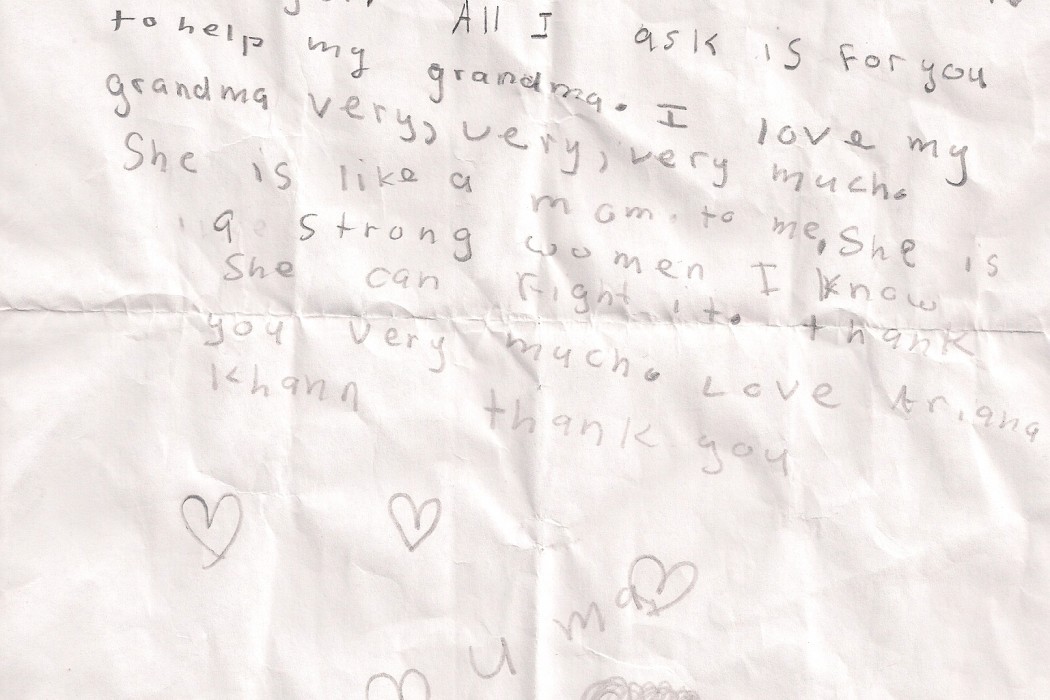 All I ask is for you
to help my grandma. I love my
grandma very, very, very much.
She is like a mom. to me, She is
a strong women I know
She can fight it. thank
you very much. Love Ariana
Khann thank you